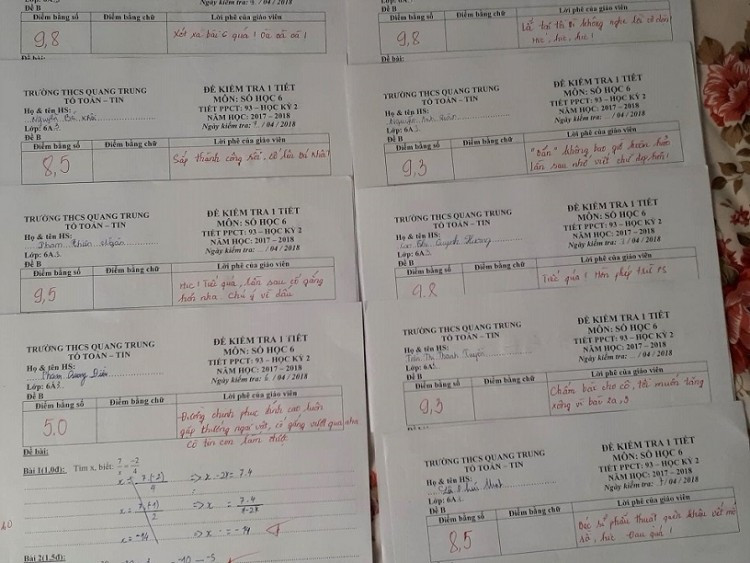 Đề B
Điểm bằng số Điểm bằng chữ Lời phê của giáo viên
9,8 Xót xa bài 6 quá! Oa oa oa!
Đề bài:
Ngày kiểm tra: /04/2018
Điểm bằng số Điểm bằng chữ Lời phê của giáo viên
9,8
TRƯỜNG THCS QUANG TRUNG
TỔ TOÁN – TIN
ĐỀ KIỂM TRA 1 TIẾT
MÔN: SỐ HỌC 6
TIẾT PPCT: 93 – HỌC KỲ 2
NĂM HỌC: 2017 – 2018
Ngày kiểm tra: /04/2018
Họ & tên HS:
Nguyễn Bá
Lớp: 6A
Đề B
Điểm bằng số Điểm bằng chữ Lời phê của giáo viên
8,5 Sắp thành công rồi, cố lên Bá
TRƯỜNG THCS QUANG TRUNG
TỔ TOÁN – TIN
ĐỀ KIỂM TRA 1 TIẾT
MÔN: SỐ HỌC 6
TIẾT PPCT: 93 – HỌC KỲ 2
NĂM HỌC: 2017 – 2018
Ngày kiểm tra: /04/2018
Họ & tên HS:
Nguyễn
Lớp: 6A
Đề B
Điểm bằng số Điểm bằng chữ Lời phê của giáo viên
9,3
lần sau nhớ viết chữ đẹp hơn!
TRƯỜNG THCS QUANG TRUNG
TỔ TOÁN – TIN
ĐỀ KIỂM TRA 1 TIẾT
MÔN: SỐ HỌC 6
TIẾT PPCT: 93 – HỌC KỲ 2
NĂM HỌC: 2017 – 2018
Ngày kiểm tra: /04/2018
Họ & tên HS:
Phạm Thiên Ngân
Lớp: 6A3
Đề B
Điểm bằng số Điểm bằng chữ Lời phê của giáo viên
9,5 Hic! Tiếc quá, lần sau cố gắng
hơn nha. Chú ý về dấu
TRƯỜNG THCS QUANG TRUNG
TỔ TOÁN – TIN
ĐỀ KIỂM TRA 1 TIẾT
MÔN: SỐ HỌC 6
TIẾT PPCT: 93 – HỌC KỲ 2
NĂM HỌC: 2017 – 2018
Ngày kiểm tra: /04/2018
Họ & tên HS:
Quỳnh Hương
Lớp: 6A
Đề B
Điểm bằng số Điểm bằng chữ Lời phê của giáo viên
9.8 Tiếc quá! Hỗn phép trừ PS
TRƯỜNG THCS QUANG TRUNG
TỔ TOÁN – TIN
ĐỀ KIỂM TRA 1 TIẾT
MÔN: SỐ HỌC 6
TIẾT PPCT: 93 – HỌC KỲ 2
NĂM HỌC: 2017 – 2018
Ngày kiểm tra: 6 /04/2018
Họ & tên HS:
Phạm Dương
Lớp: 6A3
Đề B
Điểm bằng số Điểm bằng chữ Lời phê của giáo viên
5.0 Đường chinh phục đỉnh cao luôn
gặp thương ngại vật, cố gắng vượt qua nha
cô tin con làm được
Đề bài:
Bài 1(1,0đ): Tìm x, biết: 7/x = -2/4
=> x · -2 = 7.4
=> x = 7.4
=> x = -14
x = -14
Bài 2(1,5đ)
TRƯỜNG THCS QUANG TRUNG
TỔ TOÁN – TIN
ĐỀ KIỂM TRA 1 TIẾT
MÔN: SỐ HỌC 6
TIẾT PPCT: 93 – HỌC KỲ 2
NĂM HỌC: 2017 – 2018
Ngày kiểm tra: /04/2018
Họ & tên HS:
Trần Thị Thanh
Lớp: 6A
Đề B
Điểm bằng số Điểm bằng chữ Lời phê của giáo viên
9,3 Chấm bài cho cô, tôi muốn tăng
xông vì bài 2a,3
TRƯỜNG THCS QUANG TRUNG
TỔ TOÁN – TIN
ĐỀ KIỂM TRA 1 TIẾT
MÔN: SỐ HỌC 6
TIẾT PPCT: 93 – HỌC KỲ 2
NĂM HỌC: 2017 – 2018
Ngày kiểm tra: /04/2018
Họ & tên HS:
Lớp: 6A
Đề B
Điểm bằng số Điểm bằng chữ Lời phê của giáo viên
8,5 Bác sĩ phẫu thuật quên khâu vết mổ
rồi, hic Đau quá!